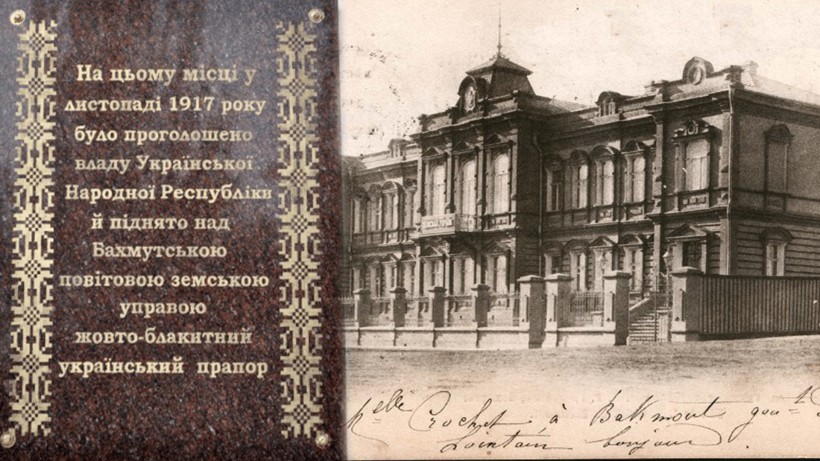 На цьому місці у
листопаді 1917 року
було проголошено
владу Української
Народної Республіки
й піднято над
Бахмутською
повітовою земською
управою
жовто-блакитний
український прапор
Melle Crochet à Bakmout gou-t
Lointain bonjour